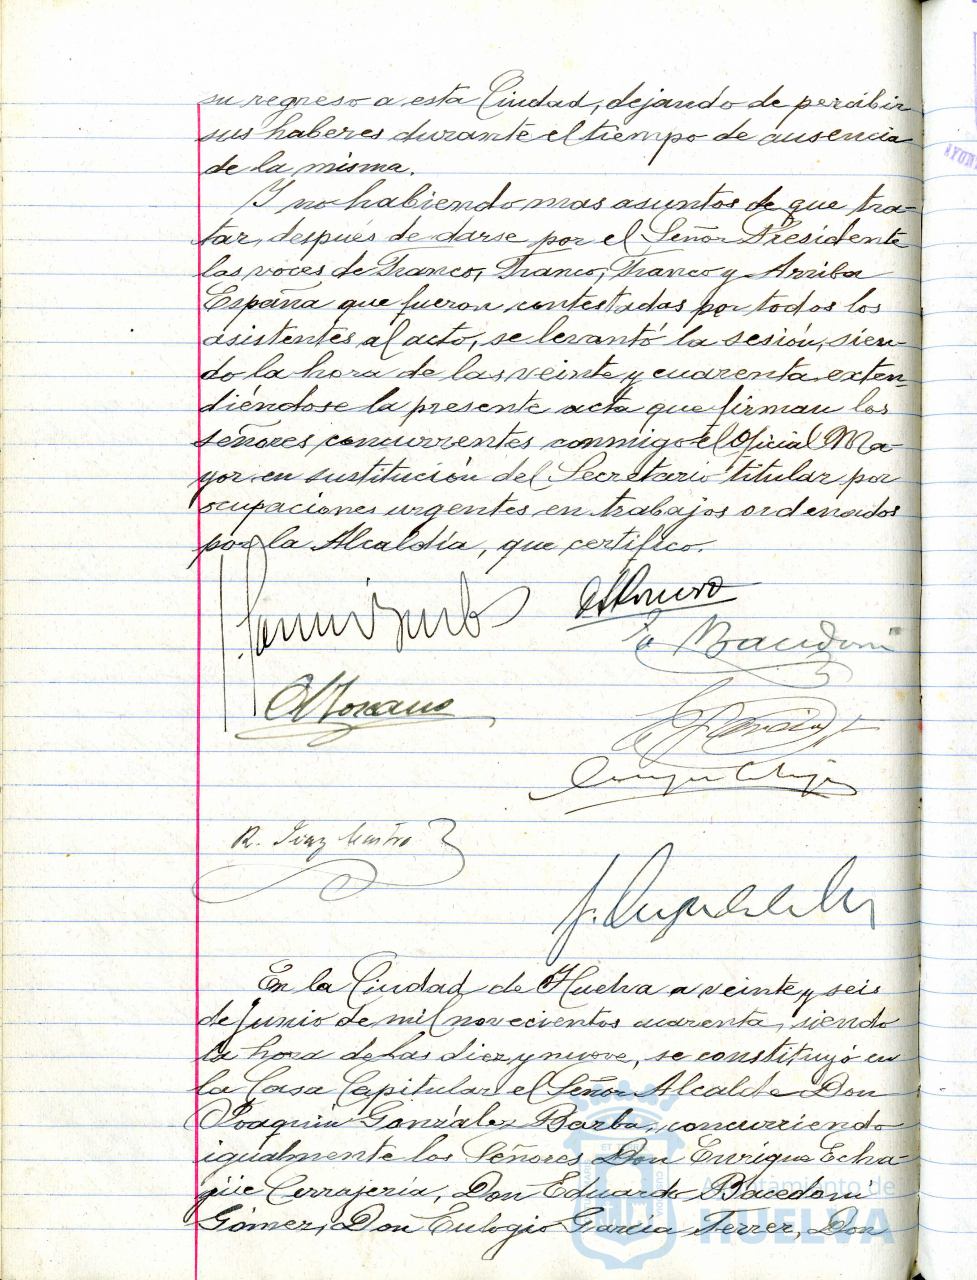 su regreso a esta Ciudad, dejando de percibir
sus haberes durante el tiempo de ausencia
de la misma.
Y no habiendo mas asuntos de que tra-
tar, después de darse por el Señor Presidente
las voces de Franco, Franco, Franco y Arriba
España que fueron contestadas por todos los
asistentes al acto, se levantó la sesión, sien-
do la hora de las veinte y cuarenta exten-
diéndose la presente acta que firman los
señores concurrentes conmigo el Oficial Ma-
yor en sustitución del Secretario titular por
ocupaciones urgentes en trabajos ordenados
por la Alcaldía, que certifico.
Bacedoni
R. Diaz
En la Ciudad de Huelva a veinte y seis
de Junio de mil novecientos cuarenta, siendo
la hora de las diez y nueve, se constituyó en
la Casa Capitular el Señor Alcalde Don
Joaquin González Barba, concurriendo
igualmente los Señores Don Enrique Echa-
güe Cerrajeria, Don Eduardo Bacedoni
Gómez, Don Eulogio Garcia Ferrer, Don
Ayuntamiento de
HUELVA